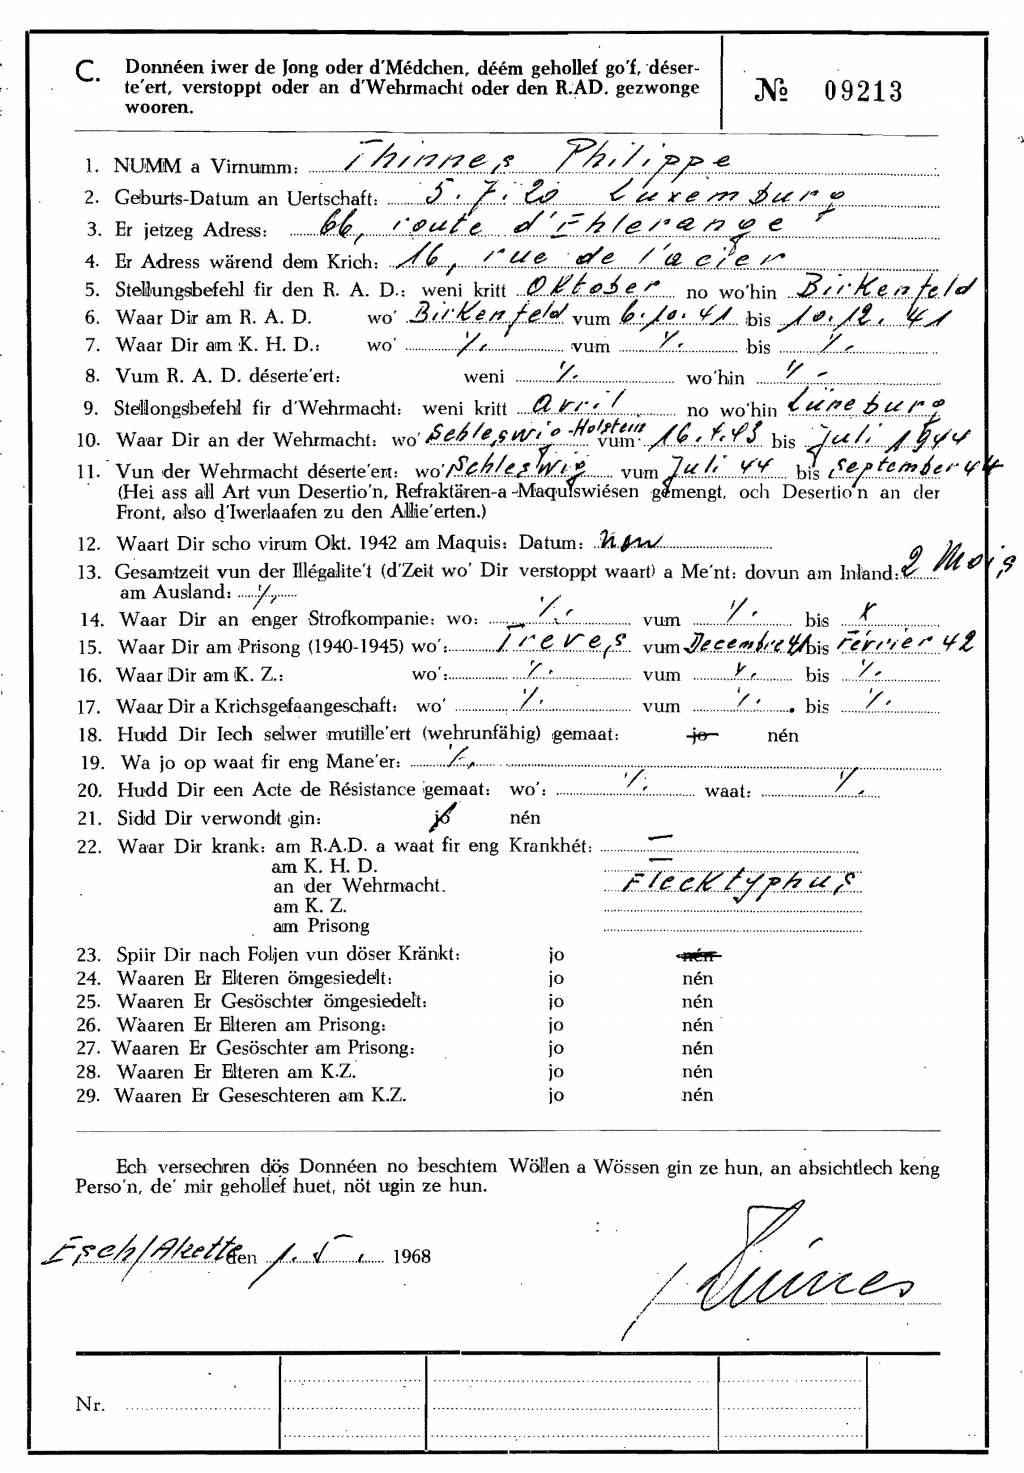 C. Donnéen iwer de Jong oder d'Médchen, déém gehollef go'f, déser-
te'ert, verstoppt oder an d'Wehrmacht oder den R.AD. gezwonge
wooren.
№ 09213
1. NUMM a Virnumm: Thinnes Philippe
2. Geburts-Datum an Uertschaft: 5.7.20 Luxemburg
3. Er jetzeg Adress: 66, route d'Ehlerange
4. Er Adress wärend dem Krich: 16, rue de l'acier
5. Stellungsbefehl fir den R. A. D.: weni kritt Oktober no wo'hin Birkenfeld
6. Waar Dir am R. A. D. wo' Birkenfeld vum 6.10.41 bis 10.12.41
7. Waar Dir am K. H. D.: wo' ./. vum ./. bis ./.
8. Vum R. A. D. déserte'ert: weni ./. wo'hin ./.
9. Stellongsbefehl fir d'Wehrmacht: weni kritt Avril no wo'hin Lüneburg
10. Waar Dir an der Wehrmacht: wo' Schleswig-Holstein vum 16.4.43 bis Juli 1944
11. Vun der Wehrmacht déserte'ert: wo' Schleswig vum Juli 44 bis September 44
(Hei ass all Art vun Desertio'n, Refraktären-a-Maquiswiésen gemengt, och Desertio'n an der
Front, also d'Iwerlaafen zu den Allie'erten.)
12. Waart Dir scho virum Okt. 1942 am Maquis: Datum: non
13. Gesamtzeit vun der Illégalite't (d'Zeit wo' Dir verstoppt waart) a Me'nt: dovun am Inland: 2 Mois
am Ausland: ./.
14. Waar Dir an enger Strofkompanie: wo: ./. vum ./. bis x
15. Waar Dir am Prisong (1940-1945) wo': Treves vum Decembre 41 bis Février 42
16. Waar Dir am K. Z.: wo': ./. vum ./. bis ./.
17. Waar Dir a Krichsgefaangeschaft: wo' ./. vum ./. bis ./.
18. Hudd Dir Iech selwer mutille'ert (wehrunfähig) gemaat: jo nén
19. Wa jo op waat fir eng Mane'er: ./.
20. Hudd Dir een Acte de Résistance gemaat: wo': ./. waat: ./.
21. Sidd Dir verwondt gin: jo nén
22. Waar Dir krank: am R.A.D. a waat fir eng Krankhét: —
am K. H. D. —
an der Wehrmacht. Flecktyphus
am K. Z.
am Prisong
23. Spiir Dir nach Foljen vun döser Kränkt: jo nén
24. Waaren Er Elteren ömgesiedelt: jo nén
25. Waaren Er Gesöschter ömgesiedelt: jo nén
26. Waaren Er Elteren am Prisong: jo nén
27. Waaren Er Gesöschter am Prisong: jo nén
28. Waaren Er Elteren am K.Z. jo nén
29. Waaren Er Geseschteren am K.Z. jo nén
Ech versechren dös Donnéen no beschtem Wöllen a Wössen gin ze hun, an absichtlech keng
Perso'n, de' mir gehollef huet, nöt ugin ze hun.
Esch/Alzette den 1.5. 1968
Thinnes
Nr.